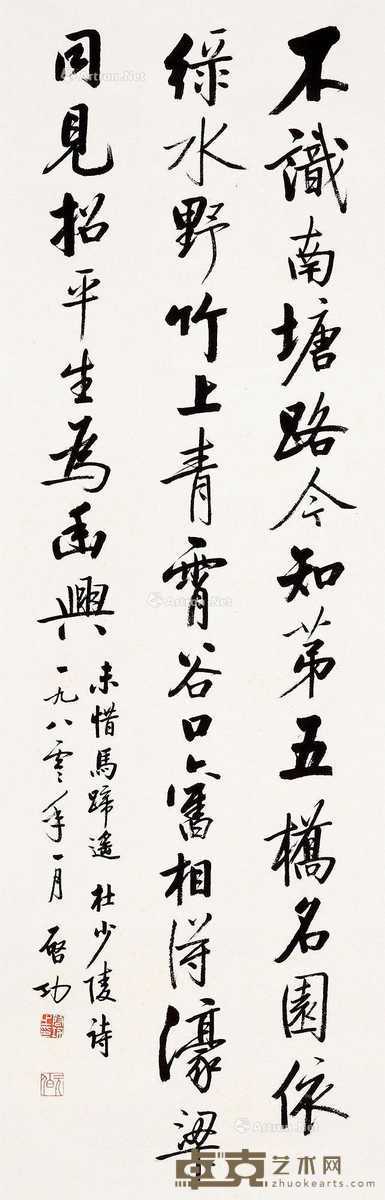 不識南塘路今知第五橋名園依
綠水野竹上青霄谷口舊相得濠梁
同見招平生為幽興
未惜馬蹄遙 杜少陵詩
一九八零年一月 啟功
Artron.Net
Artron.Net
Artron.Net
卓克艺术网
zhuokearts.com